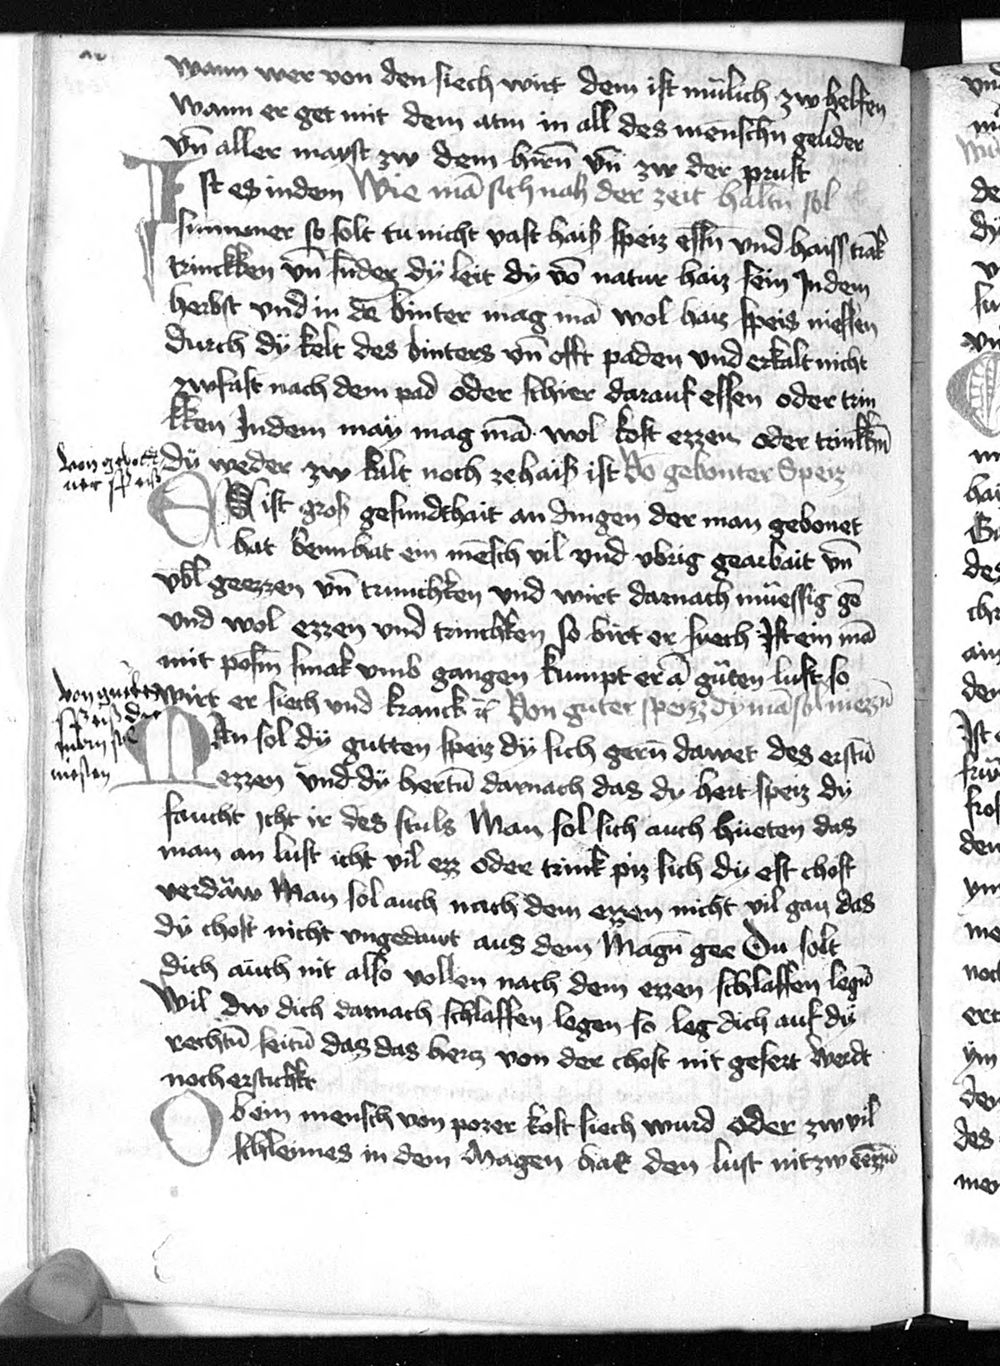 wann wer von den siech wirt dem ist mülich zw helfen
wann er get mit dem atm in all des menschn gelider
vn̄ aller mayst zw dem hirn̄ vn̄ zw der prust
Ist es in dem Wie mā sich nah der zeit haltn̄ sol
summer so solt tu nicht vast haiß speiz essn̄ vnd haiss trāk
trinckken vn̄ sunder dÿ leit dÿ vō natur haiz sein In dem
herbst vnd in dē binter mag mā wol haiz speis niessen
durch dÿ kelt des binters vn̄ offt paden vnd erkalt nicht
zw fast nach dem pad oder schier darauf essen oder trin
kken In dem maÿ mag mā wol kost ezzen oder trinkkn̄
dÿ weder zw kalt noch ze haiß ist Vō gebonter Speiz
von gebont
ner speiß
Es ist groß gesundthait an dingen der man gebonet
hat benn hat ein mēsch vil vnd vbrig gearbait vn̄
vbl geezzen vn̄ trunchken vnd wirt darnach müessig gē
vnd wol ezzen vnd trinchken so birt er siech Ist ein mā
mit posm̄ smak vmb gangen kumpt er ā güten luft so
wirt er siech vnd kranck Von guter speizz dy mā sol niezzn̄
von guetter
speiß die
man sol
niesen
Man sol dÿ gutten speiz dÿ sich gern̄ dawet des erstn̄
ezzen vnd dÿ hertn̄ darnach das dy hert speiz dy
faucht icht ir des stuls Man sol sich auch hüeten das
man an lust icht vil ezz oder trink piz sich dy est chost
verdäw Man sol auch nach dem ezzen nicht vil gan das
dÿ chost nicht vngedawt aus dem Magn̄ gee Du solt
dich auch nit also vollen nach dem ezzen schlaffen legn̄
Wil dw dich darnach schlaffen legen so leg dich auf dÿ
rechtn̄ seitn̄ daz das hercz von der chost nit gesert werdt
noch erstichkt
Ob ein mensch von pozer kost siech wurd oder zw vil
schleimes in dem Magen hat den lust nit zw ezzn̄